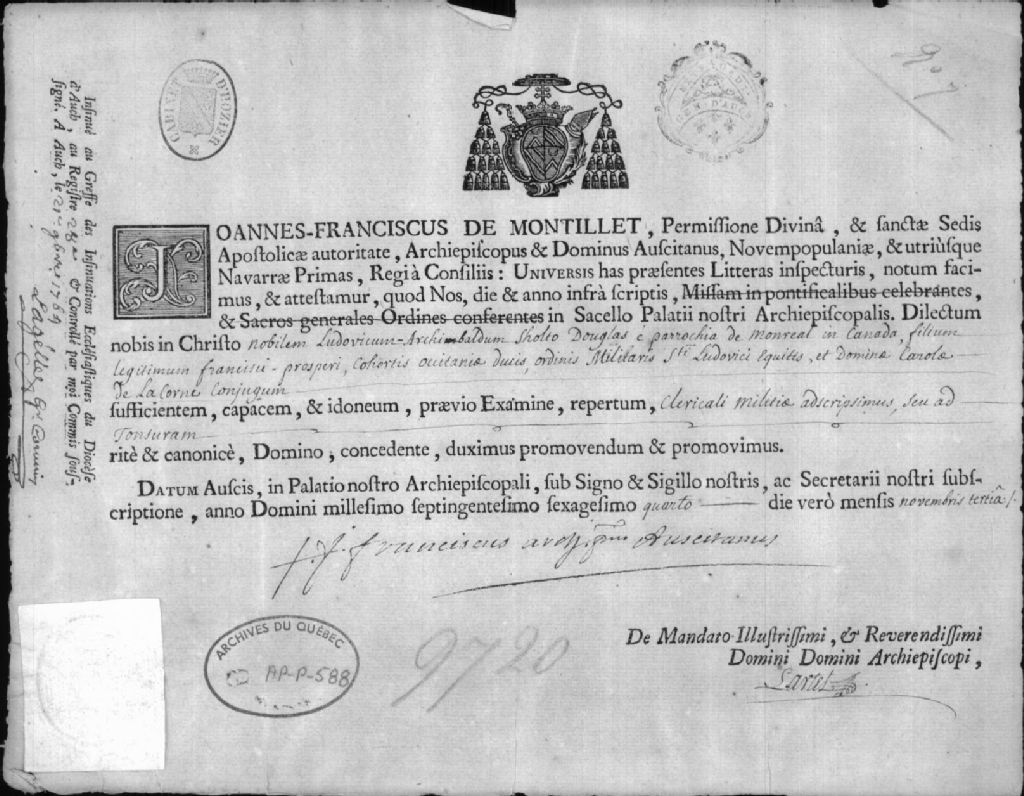 CABINET D'HOZIER
GEN. D'AUCH
Insinué au Greffe des Insinuations Ecclésiastiques du Diocèse
d'Auch, au Registre & Contrôlé par moi Commis sous-
signé. A Auch, le 1764
JOANNES-FRANCISCUS DE MONTILLET, Permissione Divinâ, & sanctæ Sedis
Apostolicæ autoritate, Archiepiscopus & Dominus Auscitanus, Novempopulaniæ, & utriúsque
Navarræ Primas, Regi à Consiliis: UNIVERSIS has præsentes Litteras inspecturis, notum faci-
mus, & attestamur, quod Nos, die & anno infrà scriptis, Missam in pontificalibus celebrantes,
& Sacros generales Ordines conferentes in Sacello Palatii nostri Archiepiscopalis. Dilectum
nobis in Christo nobilem Ludovicum-Archimbaldum Sholto Douglas è parrochia de Monreal in Canada, filium
legitimum francisci-prosperi, Cohortis ducis, ordinis Militaris Sti Ludovici Equitis, et Dominæ Carolæ
de La Corne Conjugum
sufficientem, capacem, & idoneum, prævio Examine, repertum, Clericali militiæ adscripsimus, seu ad
Tonsuram
ritè & canonicè, Domino, concedente, duximus promovendum & promovimus.
DATUM Auscis, in Palatio nostro Archiepiscopali, sub Signo & Sigillo nostris, ac Secretarii nostri subs-
criptione, anno Domini millesimo septingentesimo sexagesimo quarto die verò mensis novembris tertiâ
J. f. franciscus Auscitanus
De Mandato Illustrissimi, & Reverendissimi
Domini Domini Archiepiscopi,
ARCHIVES DU QUÉBEC
AP-P-588
9720